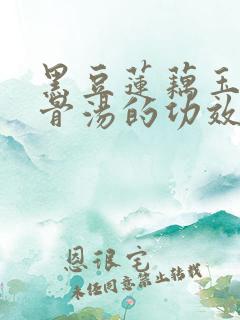 黑豆蓮藕玉
骨湯的功效
恩很宅
未经同意禁止转载